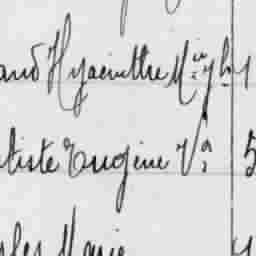 and Hyacinthe M
tiste Eugène Vᵃ 5
les Marie